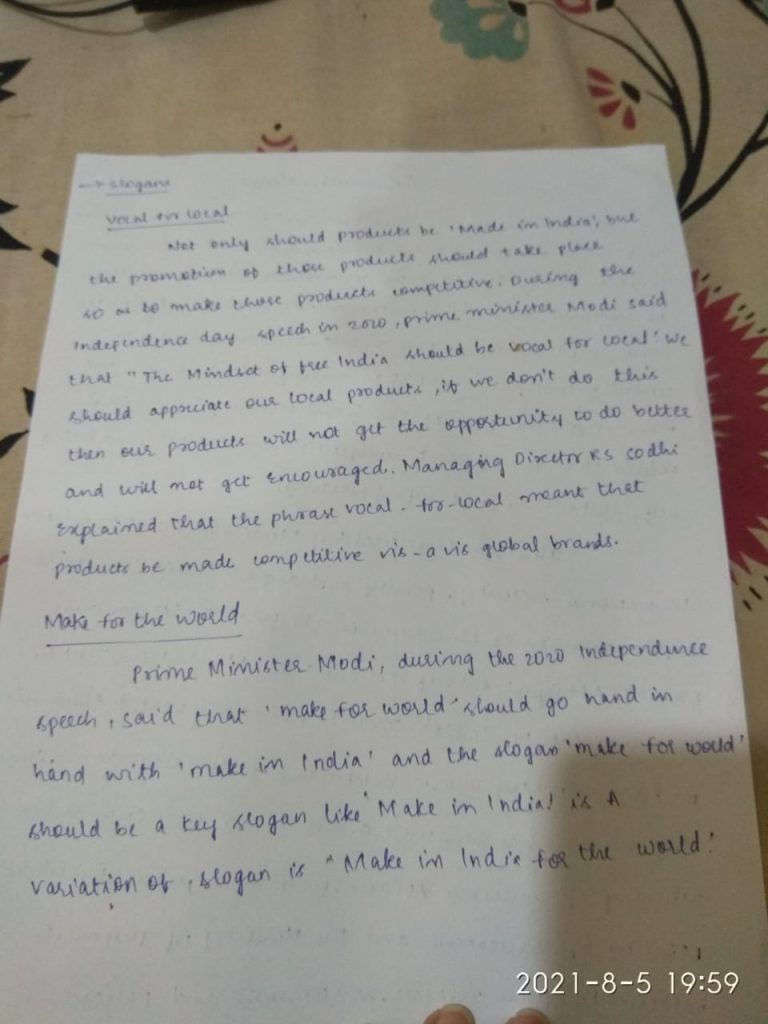 → slogans
Vocal for local
Not only should products be 'Made in India', but
the promotion of those products should take place
so as to make those products competitive. During the
Independence day speech in 2020, prime minister Modi said
that "The Mindset of free India should be vocal for local' We
should appreciate our local products, if we don't do this
then our products will not get the opportunity to do better
and will not get encouraged. Managing Director RS sodhi
explained that the phrase vocal-for-local meant that
products be made competitive vis-a vis global brands.
Make for the world
Prime Minister Modi, during the 2020 Independence
speech, said that 'make for world' should go hand in
hand with 'make in India' and the slogan 'make for world'
should be a key slogan like "Make in India! is A
variation of slogan is "Make in India for the world!
2021-8-5 19:59